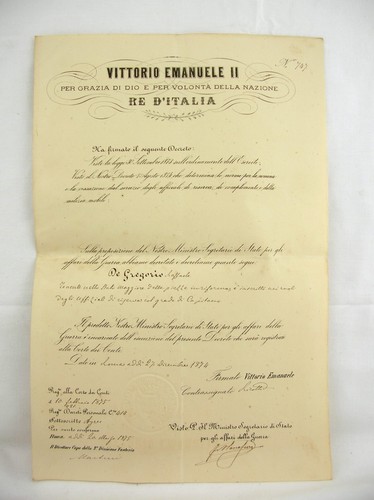 Nº 727
VITTORIO EMANUELE II
PER GRAZIA DI DIO E PER VOLONTÀ DELLA NAZIONE
RE D'ITALIA
Ha firmato il seguente Decreto:
Vista la legge 30 Settembre 1874 sull'ordinamento dell'Esercito;
Visto il Nostro Decreto Agosto 1874 che determina le norme per la nomina
e la degli ufficiali di riserva, di complemento e della
milizia mobile
Sulla proposizione del Nostro Ministro Segretario di Stato per gli
affari della Guerra abbiamo decretato e decretiamo quanto segue
De Gregorio Raffaele
nello Stato Maggiore delle piazze è inscritto nei ruoli
degli Uffiziali di riserva col grado di Capitano
Il predetto Nostro Ministro Segretario di Stato per gli affari della
Guerra è incaricato dell'esecuzione del presente Decreto che sarà registrato
alla Corte dei Conti
Dato a Roma addì 27 Dicembre 1874
Firmato Vittorio Emanuele
Contrassegnato Ricotti
Reg.to alla Corte dei Conti
a 10 febbraio 1875
Reg.to Decreti Personale C.te 210
Sottoscritto Ayres
Per copia conforme
Roma addì 20 Marzo 1875
Il Direttore Capo della Divisione Fanteria
Visto P. Il Ministro Segretario di Stato
per gli affari della Guerra